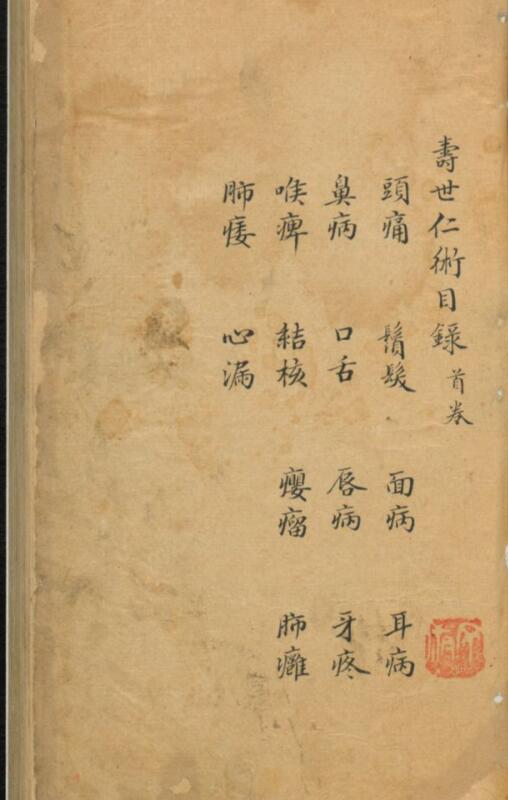 壽世仁術目錄 首券
頭痛 鬚髮 面病 耳病
鼻病 口舌 唇病 牙疼
喉痺 結核 癭瘤 肺癰
肺痿 心漏